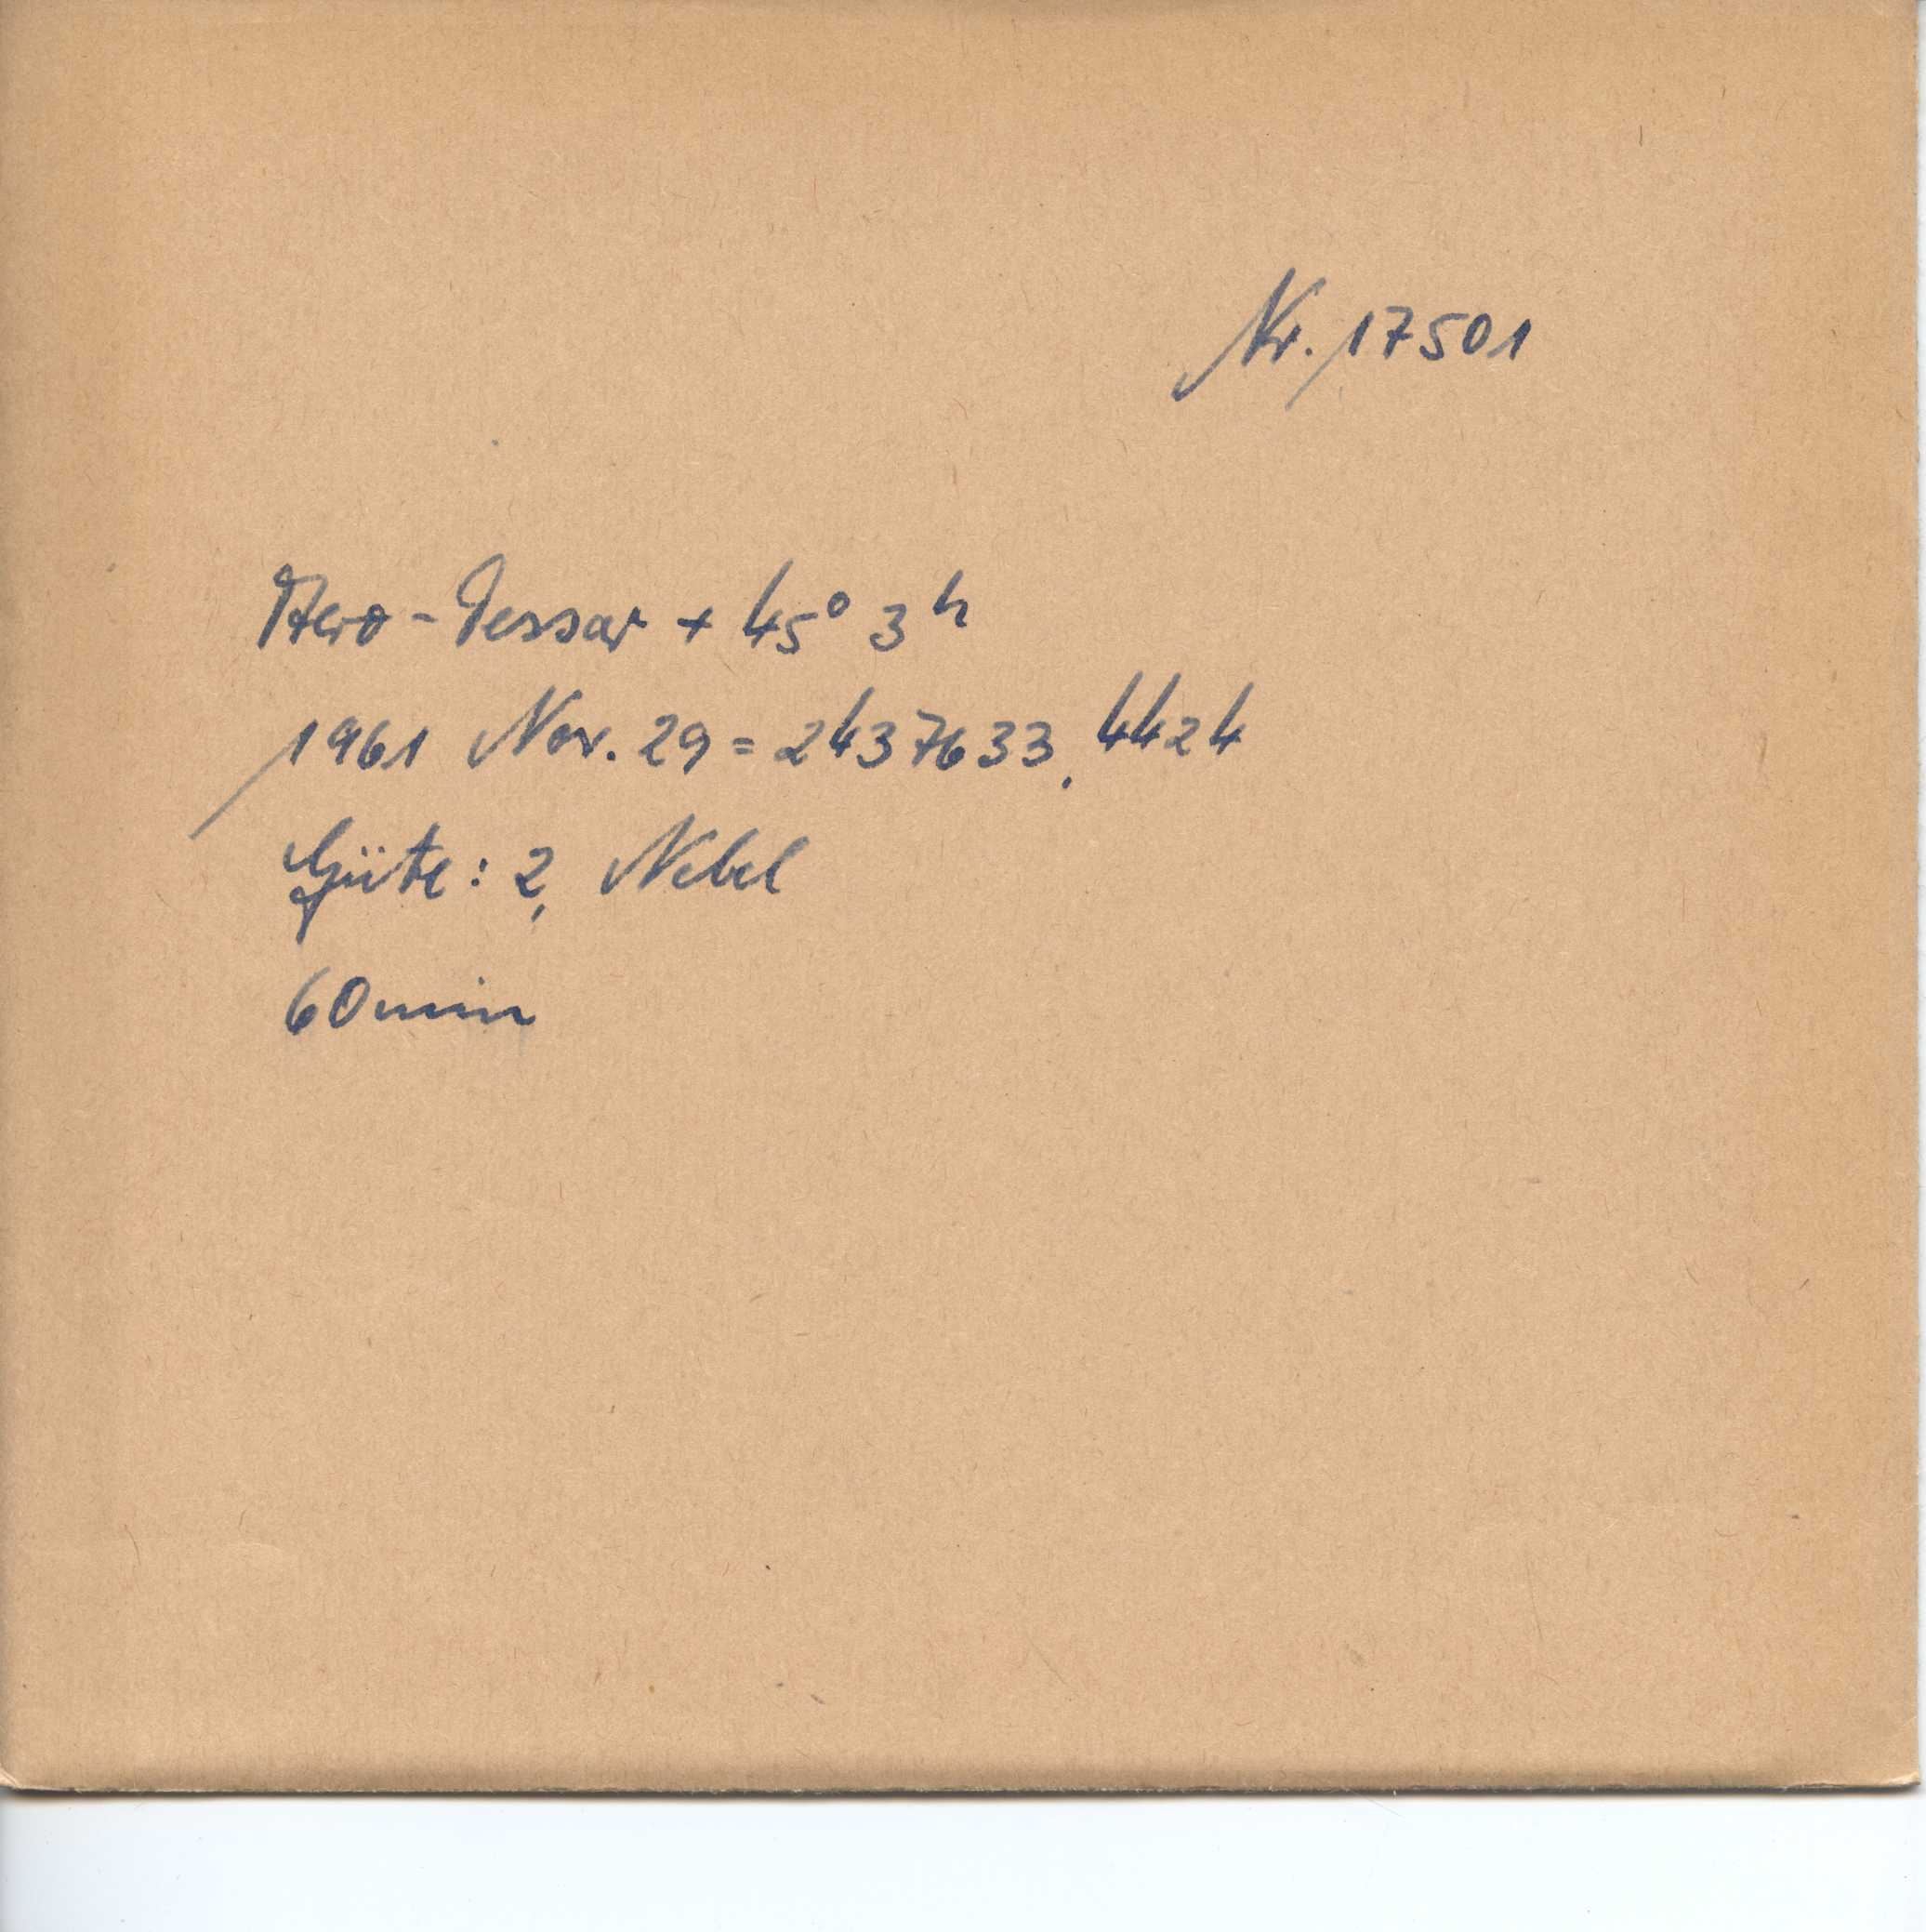 Nr. 17501
Aero-Tessar + 45° 3ʰ
1961 Nov. 29 = 2437633.4424
Güte: 2, Nebel
60 min